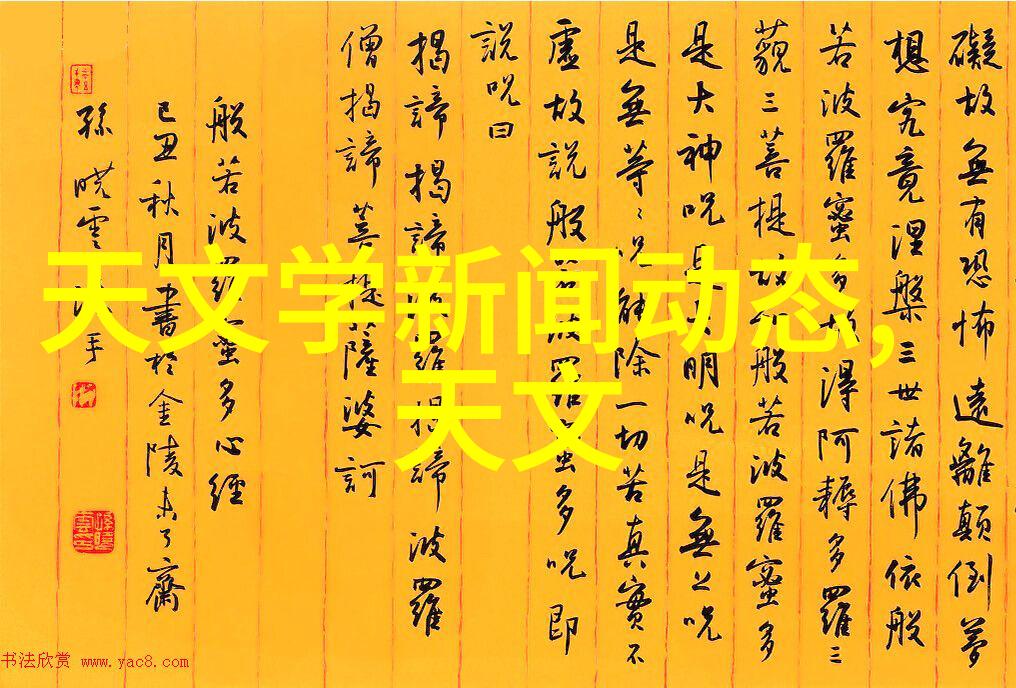 礙故無有恐怖遠離顛倒夢
想究竟涅槃三世諸佛依般
若波羅蜜多故得阿耨多羅三
藐三菩提故知般若波羅蜜多
是大神呪是大明呪是無上呪
是無等〻呪能除一切苦真實不
虛故說般若波羅蜜多呪即
說呪曰
揭諦揭諦波羅揭諦波羅
僧揭諦菩提薩婆訶
般若波羅蜜多心經
己丑秋月書於金陵未了齋
孫曉雲沐手
天文学新闻动态,
天文
书法欣赏 www.yac8.com